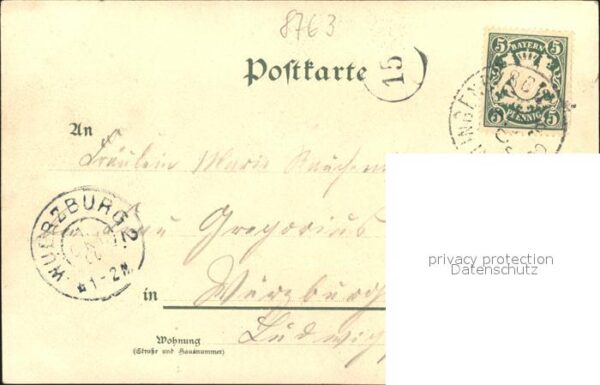 8763
Postkarte
15
5 BAYERN 5
5 PFENNIG 5
An
Fräulein Marie
Gregorius
WUERZBURG 2.
1-2N.
in Würzburg
Ludwig
Wohnung
(Straße und Hausnummer)
privacy protection
Datenschutz